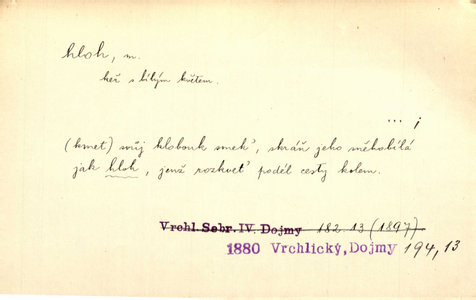 hloh, m.
keř s bílým květem.
... ;
(kmet) svůj klobouk smek', skráň jeho sněhobílá
jak hloh, jenž rozkvet' podél cesty kolem.
Vrchl. Sebr. IV. Dojmy 182. 13 (1897)
1880 Vrchlický, Dojmy 194, 13